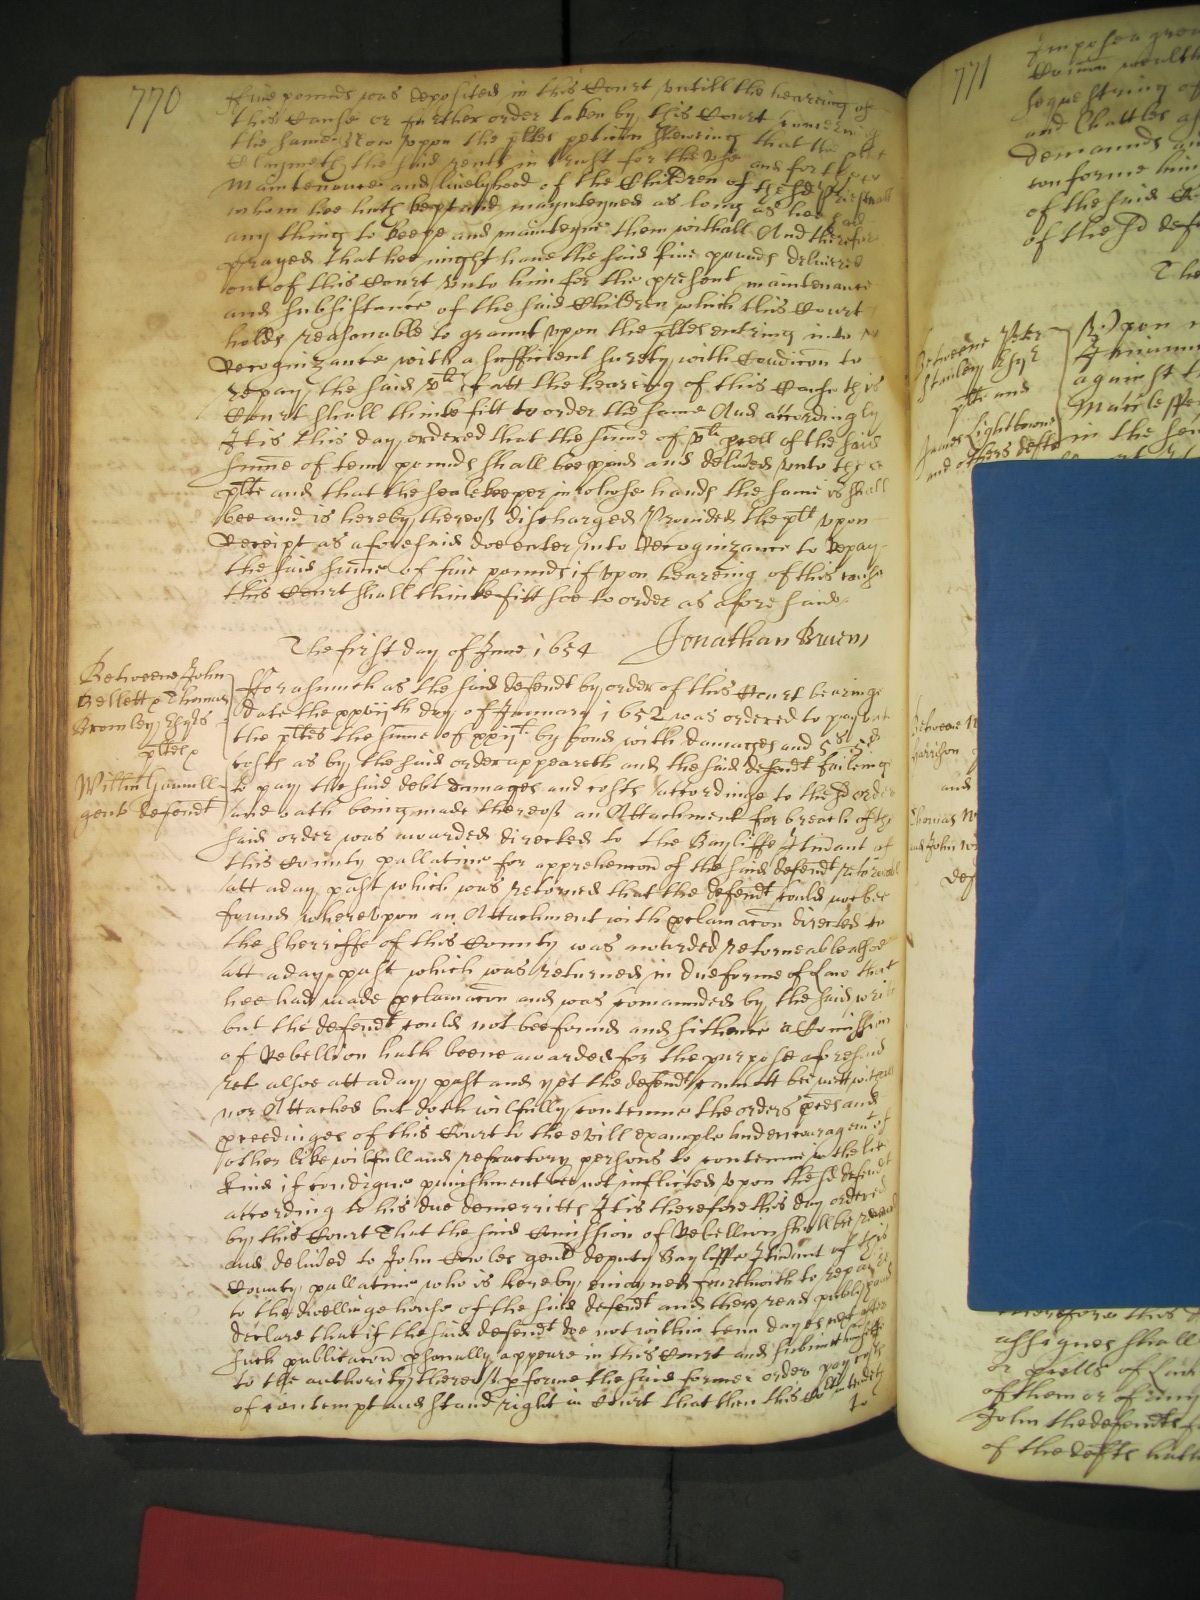 770
five pounds was deposited in this Court untill the hearing of
this Cause or further order taken by this Court concerning
the same Now upon the pltes peticon shewing that the plte
Claymeth the said rents in trust for the use and for the
Maintenance and livelyhood of the Children of the sd
whom hee hath kept and maynteyned as long as hee had
any thing to keepe and mainteyne them withall And therefore
prayed that hee might have the said five pounds delivered
out of this Court unto him for the present maintenance
and subsistance of the said Children which this Court
holds reasonable to graunt upon the pltes entring into
Recognizance with a sufficient surety with Condicon to
repay the said vli if att the hearing of this Cause this
Court shall thinke fitt to order the same And accordingly
It is this day ordered that the sume of vli pcell of the said
sume of tenn pounds shall bee paid and delived unto the
plte and that the sealekeeper in whose hands the same is shall
bee and is hereby thereof discharged Provided the plt upon
Receipt as aforesaid doe enter into Recognizance to repay
the said sume of five pounds if upon hearing of this cause
this Court shall thinke fitt soe to order as aforesaid
The first day of June 1654 Jonathan Bruen
Betweene John
Bellett & Thomas
Bromley Esqrs
pltes &
Willm
gent defendt
Forasmuch as the said defendt by order of this Court bearinge
date the xxviijth day of January 1652 was ordered to pay unto
the pltes the sume of xxijli by bond with damages and 5s 5d
costs as by the said order appeareth and the said defendt faileing
to pay the said debt damages and costs accordinge to the sd order
and oath being made thereof an Attachment for breach of the
said order was awarded directed to the Bayliffe Itinant of
this County pallatine for apprehencon of the said defendt retorneable
att a day past which was retorned that the defendt could not bee
found whereupon an Attachment with pclamacon directed to
the Sherriffe of this County was awarded retorneable alsoe
att a day past which was returned in due forme of Law that
hee had made pclamacon and was comaunded by the said writt
but the defendt could not bee found and sithence a Comission
of Rebellion hath beene awarded for the purpose aforesaid
ret alsoe att a day past and yet the defendt cannott bee mett withall
nor Attached but doth wilfully contemne the orders pces and
pceedinges of this Court to the evill example and encouragemt of
other like wilfull and refractory persons to contemne in the like
kind if condigne punishment bee not inflicted upon the sd defendt
according to his due demerritts It is therefore this day ordered
by this Court That the said Comission of Rebellion shall bee
and delived to John Cowles gent deputy Bayliffe Itinant of this
County pallatine who is hereby enioyned fourthwith to repaire
to the dwellinge house of the said defendt and there read publish and
declare that if the said defendt doe not within tenn dayes next after
such publicacon psonally appeare in this Court and submitt himselfe
to the authority thereof pforme the said former order pay costs
of contempt and stand right in Court that then this Co
to
771
Impose a
Comon wealth
sequestring of
and Chattles
demaunds
conforme him
of the said
of the sd defe
The
Betweene Peter
Stanley Esqr
plte and
James Lightbowne
and others defts
Upon
against
in the
Betweene
and
Thomas
and John
def
therefore this
assignes shall
or pcells of Land
of them or of any
John the defendts
of the defts hath